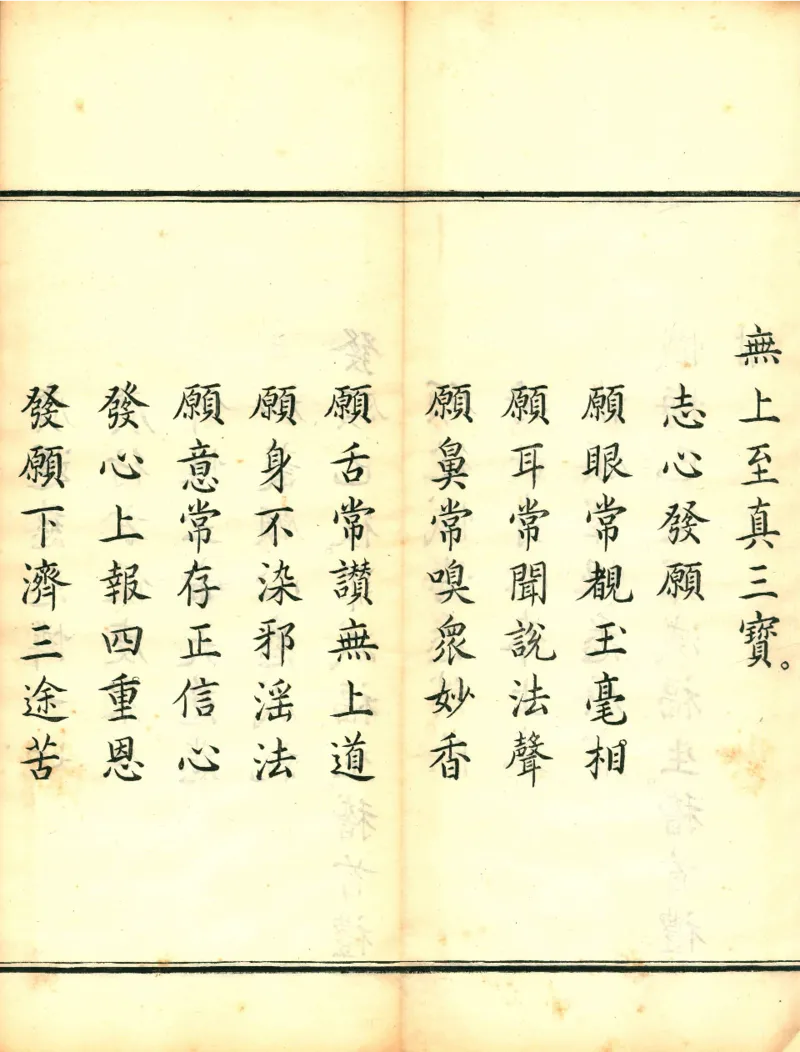 無上至真三寶。
志心發願
願眼常覩玉毫相
願耳常聞說法聲
願鼻常嗅眾妙香
願舌常讃無上道
願身不染邪滛法
願意常存正信心
發心上報四重恩
發願下濟三途苦